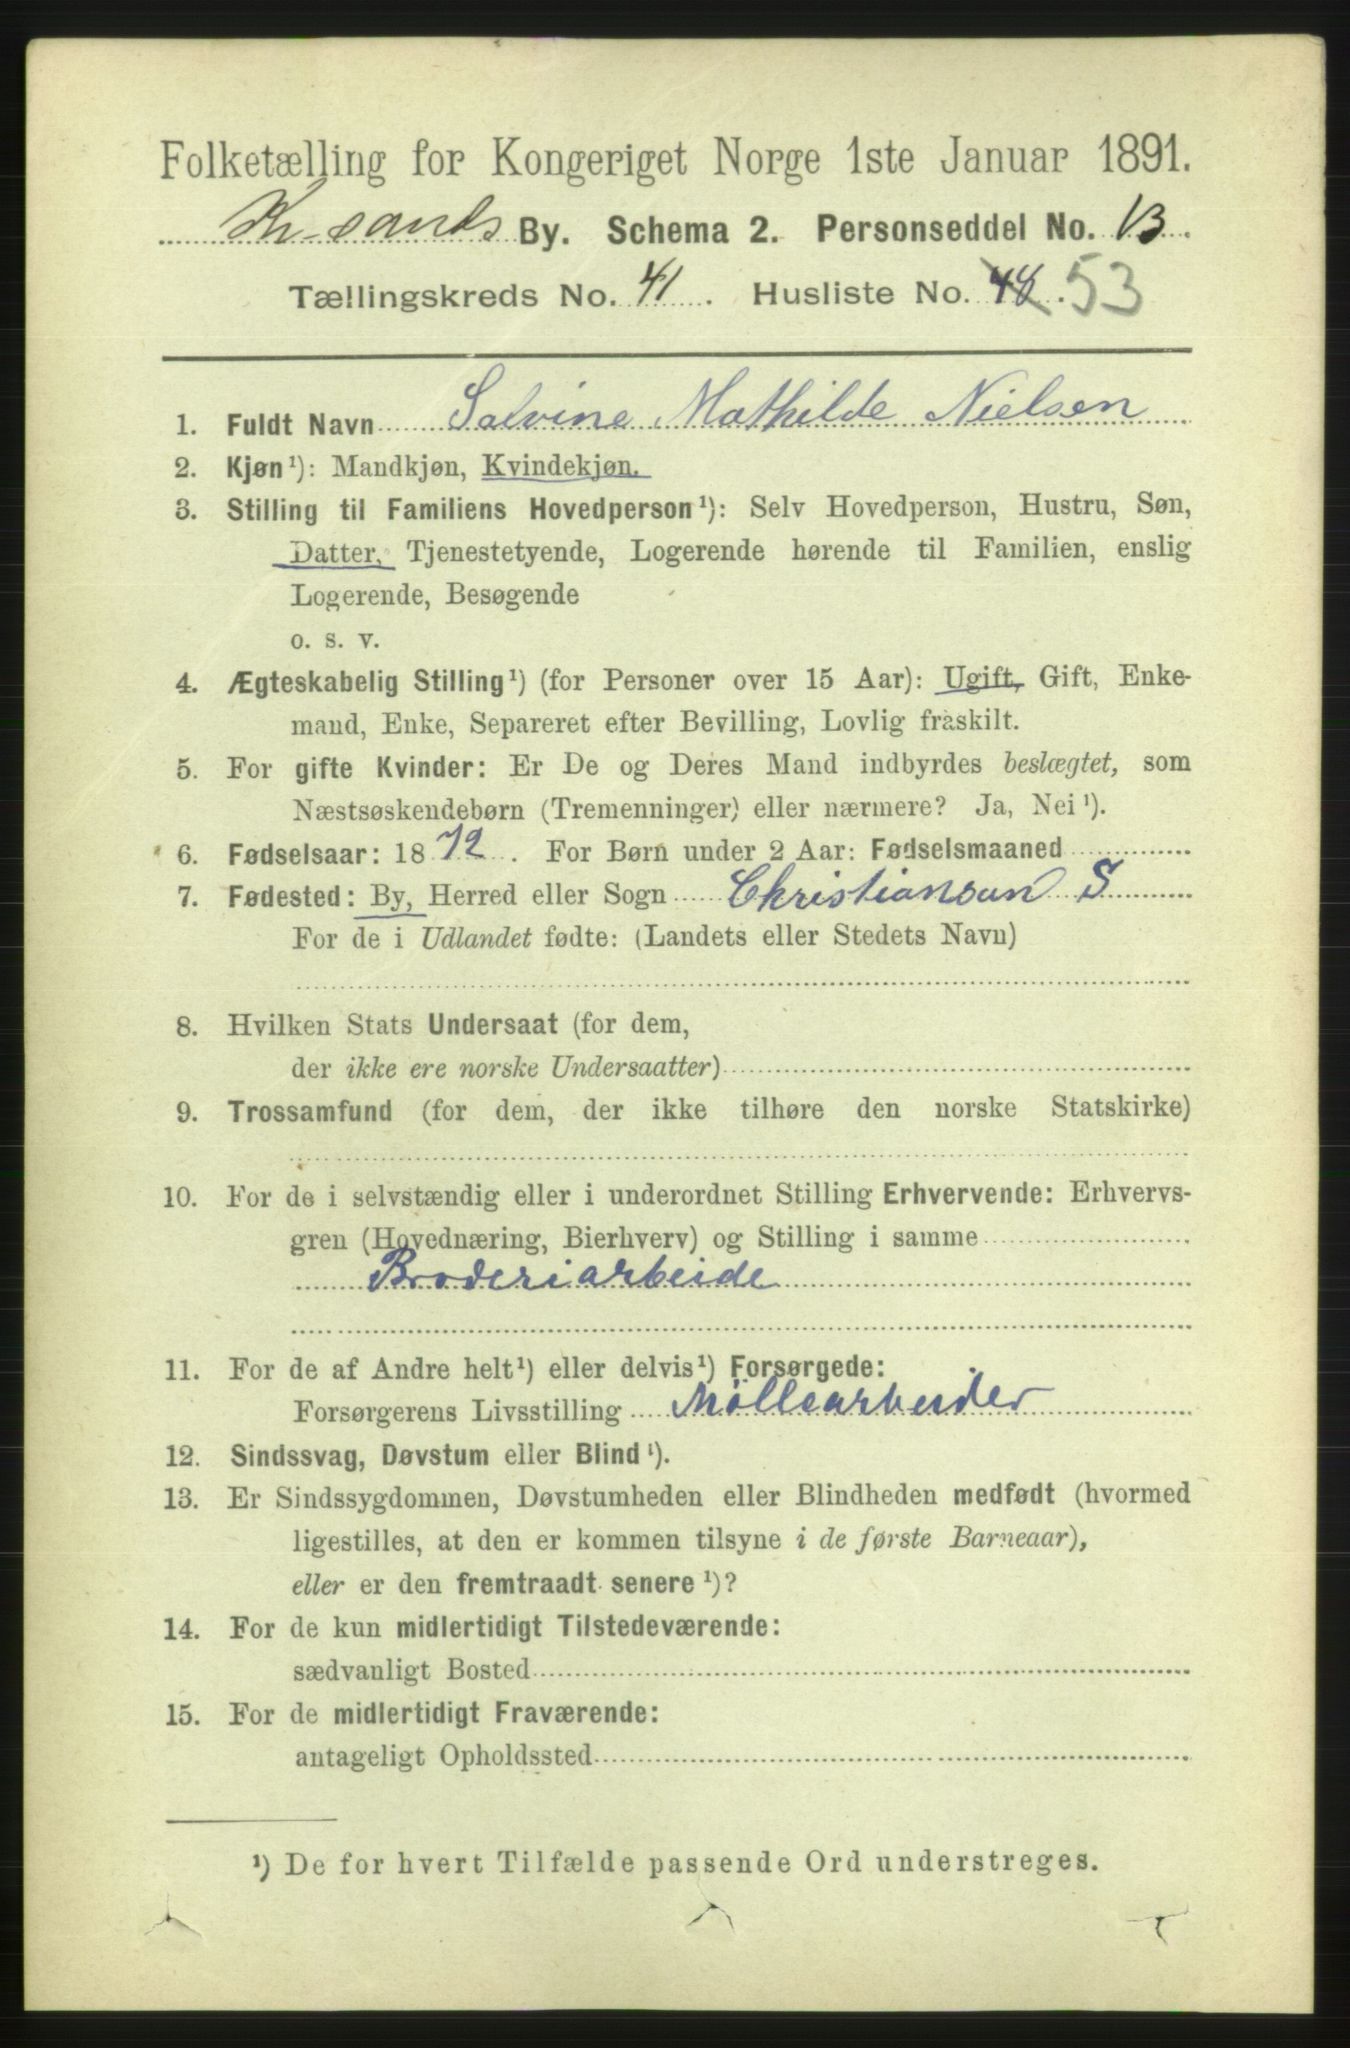 Folketælling for Kongeriget Norge 1ste Januar 1891.
Kr-sands By. Schema 2. Personseddel No. 13.
Tællingskreds No. 41. Husliste No. 48. 53
1. Fuldt Navn Salvine Mathilde Nielsen
2. Kjøn¹): Mandkjøn, Kvindekjøn.
3. Stilling til Familiens Hovedperson¹): Selv Hovedperson, Hustru, Søn,
Datter, Tjenestetyende, Logerende hørende til Familien, enslig
Logerende, Besøgende
o. s. v.
4. Ægteskabelig Stilling¹) (for Personer over 15 Aar): Ugift, Gift, Enke-
mand, Enke, Separeret efter Bevilling, Lovlig fraskilt.
5. For gifte Kvinder: Er De og Deres Mand indbyrdes beslægtet, som
Næstsøskendebørn (Tremenninger) eller nærmere? Ja, Nei¹).
6. Fødselsaar: 1872. For Børn under 2 Aar: Fødselsmaaned
7. Fødested: By, Herred eller Sogn Christiansan S
For de i Udlandet fødte: (Landets eller Stedets Navn)
8. Hvilken Stats Undersaat (for dem,
der ikke ere norske Undersaatter)
9. Trossamfund (for dem, der ikke tilhøre den norske Statskirke)
10. For de i selvstændig eller i underordnet Stilling Erhvervende: Erhvervs-
gren (Hovednæring, Bierhverv) og Stilling i samme
Broderiarbeide
11. For de af Andre helt¹) eller delvis¹) Forsørgede:
Forsørgerens Livsstilling Möllearbeider
12. Sindssvag, Døvstum eller Blind¹).
13. Er Sindssygdommen, Døvstumheden eller Blindheden medfødt (hvormed
ligestilles, at den er kommen tilsyne i de første Barneaar),
eller er den fremtraadt senere¹)?
14. For de kun midlertidigt Tilstedeværende:
sædvanligt Bosted
15. For de midlertidigt Fraværende:
antageligt Opholdssted
¹) De for hvert Tilfælde passende Ord understreges.